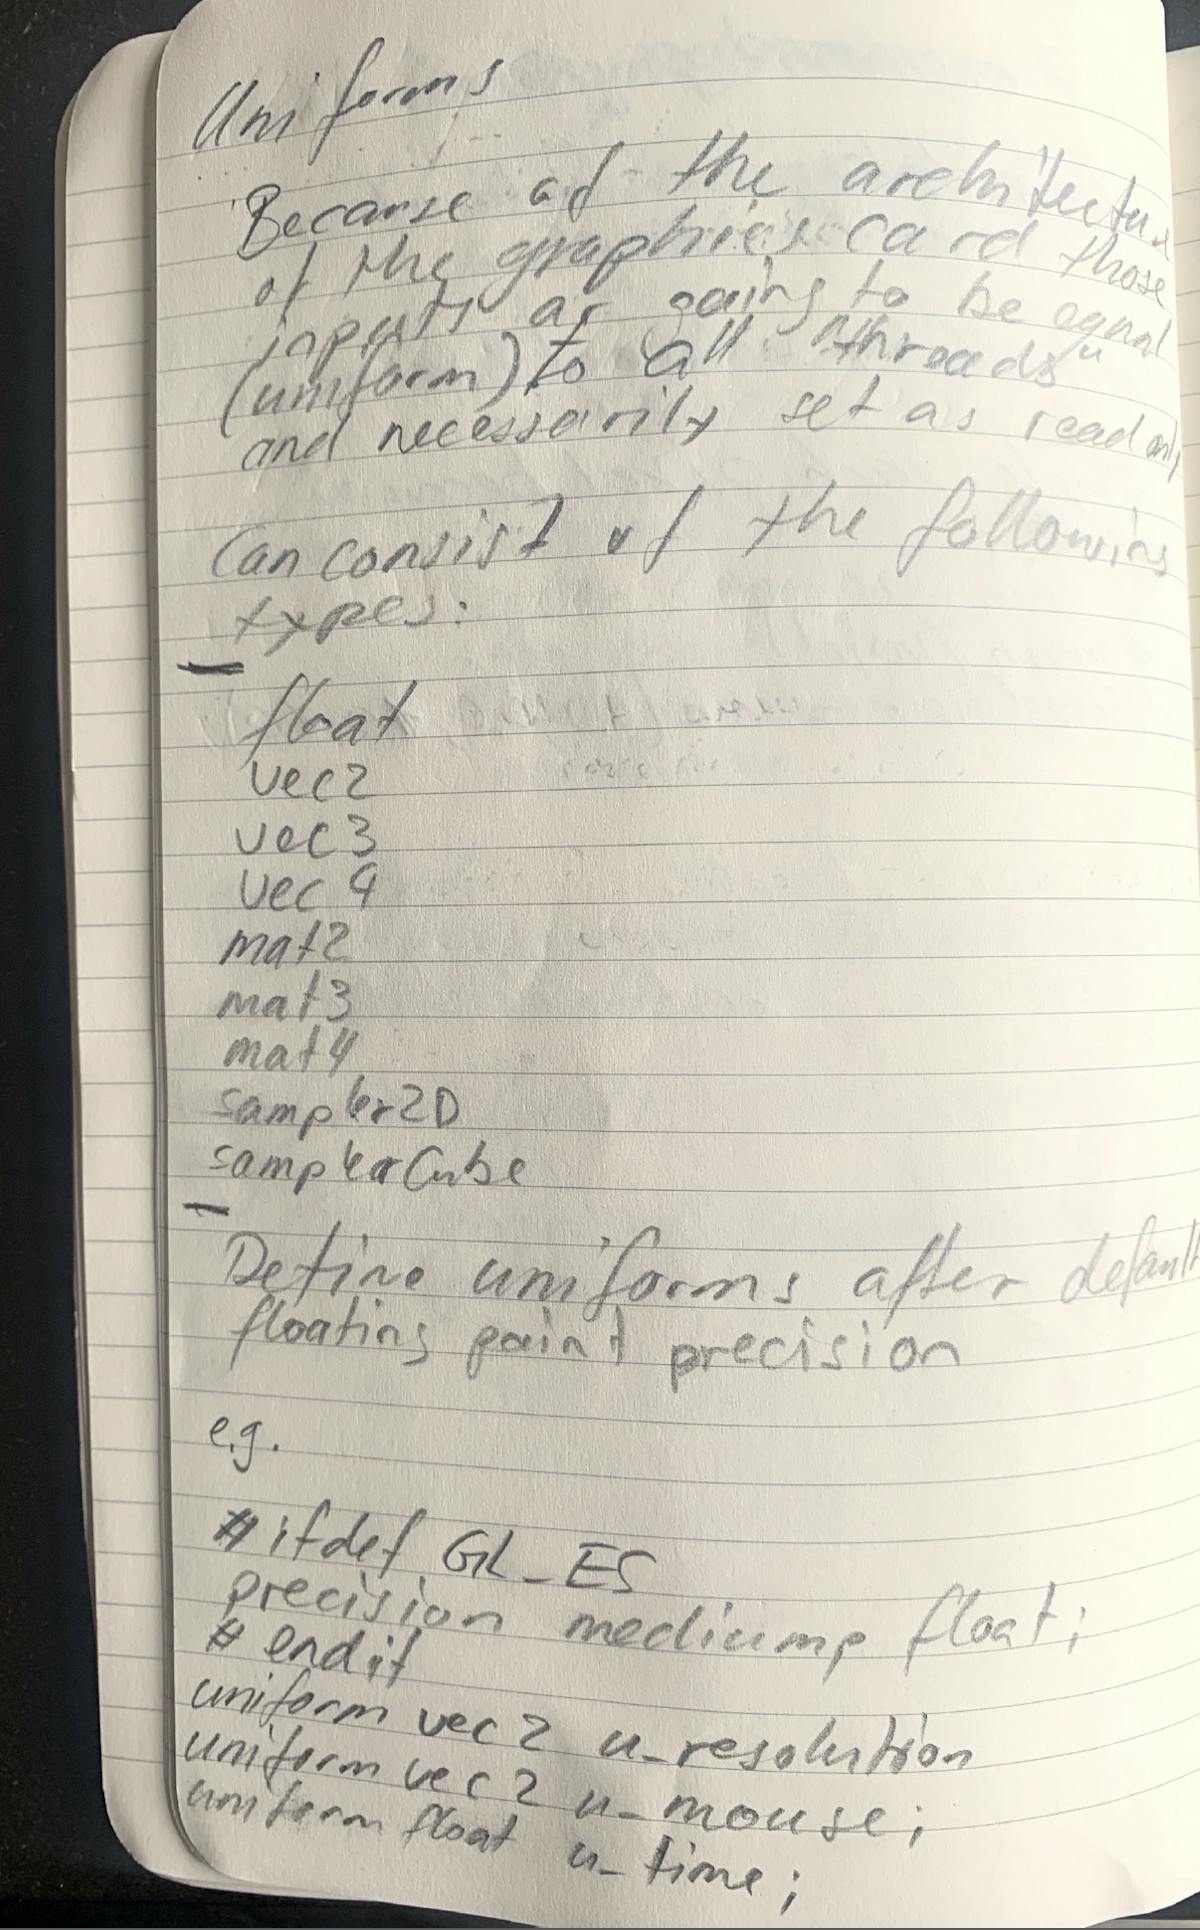 Uniforms
Because of the architecture
of the graphics card those
inputs ar going to be equal
(uniform) to all "threads"
and necessarily set as read only
Can consist of the following
types:
—
float
vec2
vec3
vec4
mat2
mat3
mat4
sampler2D
samplerCube
—
Define uniforms after default
floating point precision
e.g.
#ifdef GL_ES
precision mediump float;
#endif
uniform vec2 u_resolution
uniform vec2 u_mouse;
uniform float u_time;